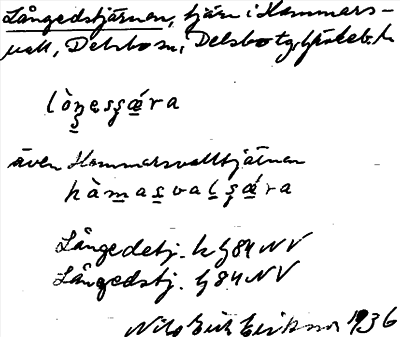 Långedstjärnen, tjärn i Hammars-
vall, Delsbo sn, Delsbo tg,
lòŋessǽra
även Hammarsvalltjärnen
hàmasvalsǽra
Långedetj. k G84 NV
Långedstj. G84 NV
Nils Erik Eriksson 1936